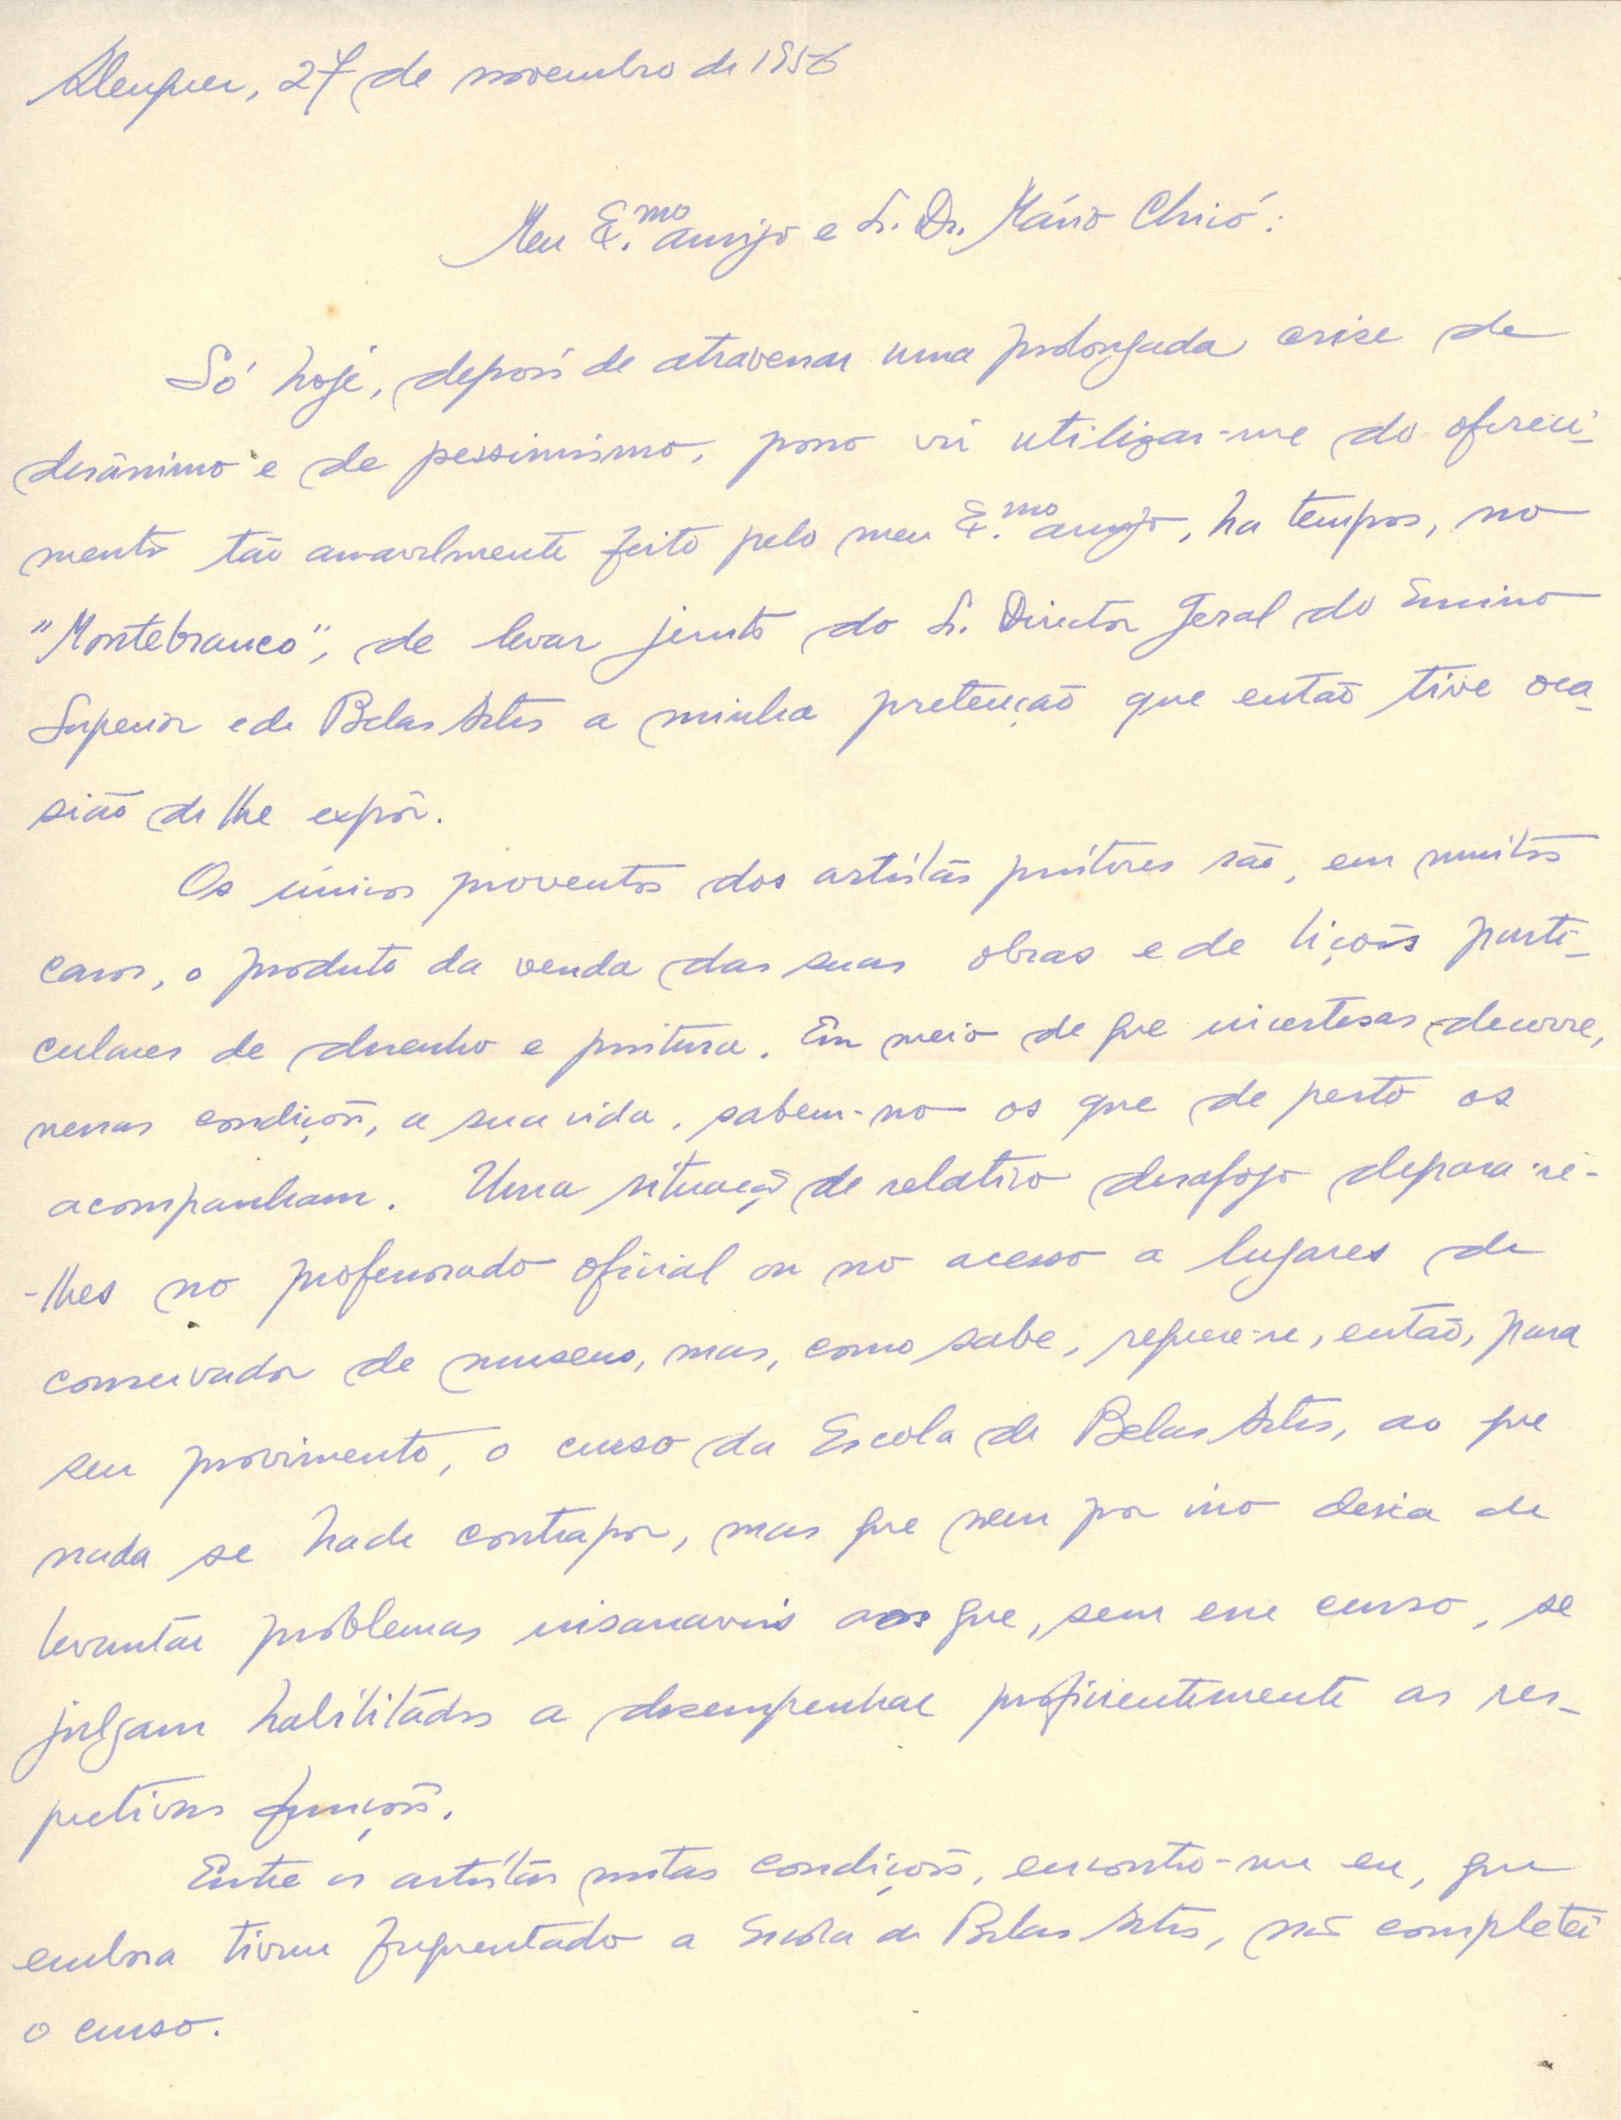 Alenquer, 27 de novembro de 1956
Meu E.mo amigo e Sr. Dr. Mário Chicó:
Só hoje, depois de atravessar uma prolongada crise de
desânimo e de pessimismo, posso vir utilizar-me do ofereci-
mento tão amavelmente feito pelo meu E.mo amigo, ha tempos, no
"Montebranco", de levar junto do Sr. Director Geral do Ensino
Superior e de Belas Artes a minha pretenção que então tive oca-
sião de lhe expôr.
Os únicos proventos dos artistas pintores são, em muitos
casos, o produto da venda das suas obras e de lições parti-
culares de desenho e pintura. Em meio de que incertesas decorre,
nessas condições, a sua vida, sabem-no os que de perto os
acompanham. Uma situação de relativo desafogo depara-se-
-lhes no professorado oficial ou no acesso a lugares de
conservador de museus, mas, como sabe, requere-se, então, para
seu provimento, o curso da Escola de Belas Artes, ao que
nada se hade contrapor, mas que nem por isso deixa de
levantar problemas insanaveis aos que, sem esse curso, se
julgam habilitados a desempenhar proficientemente as res-
pectivas funções.
Entre os artistas nestas condições, encontro-me eu, que
embora tivesse frequentado a Escola de Belas Artes, não completei
o curso.